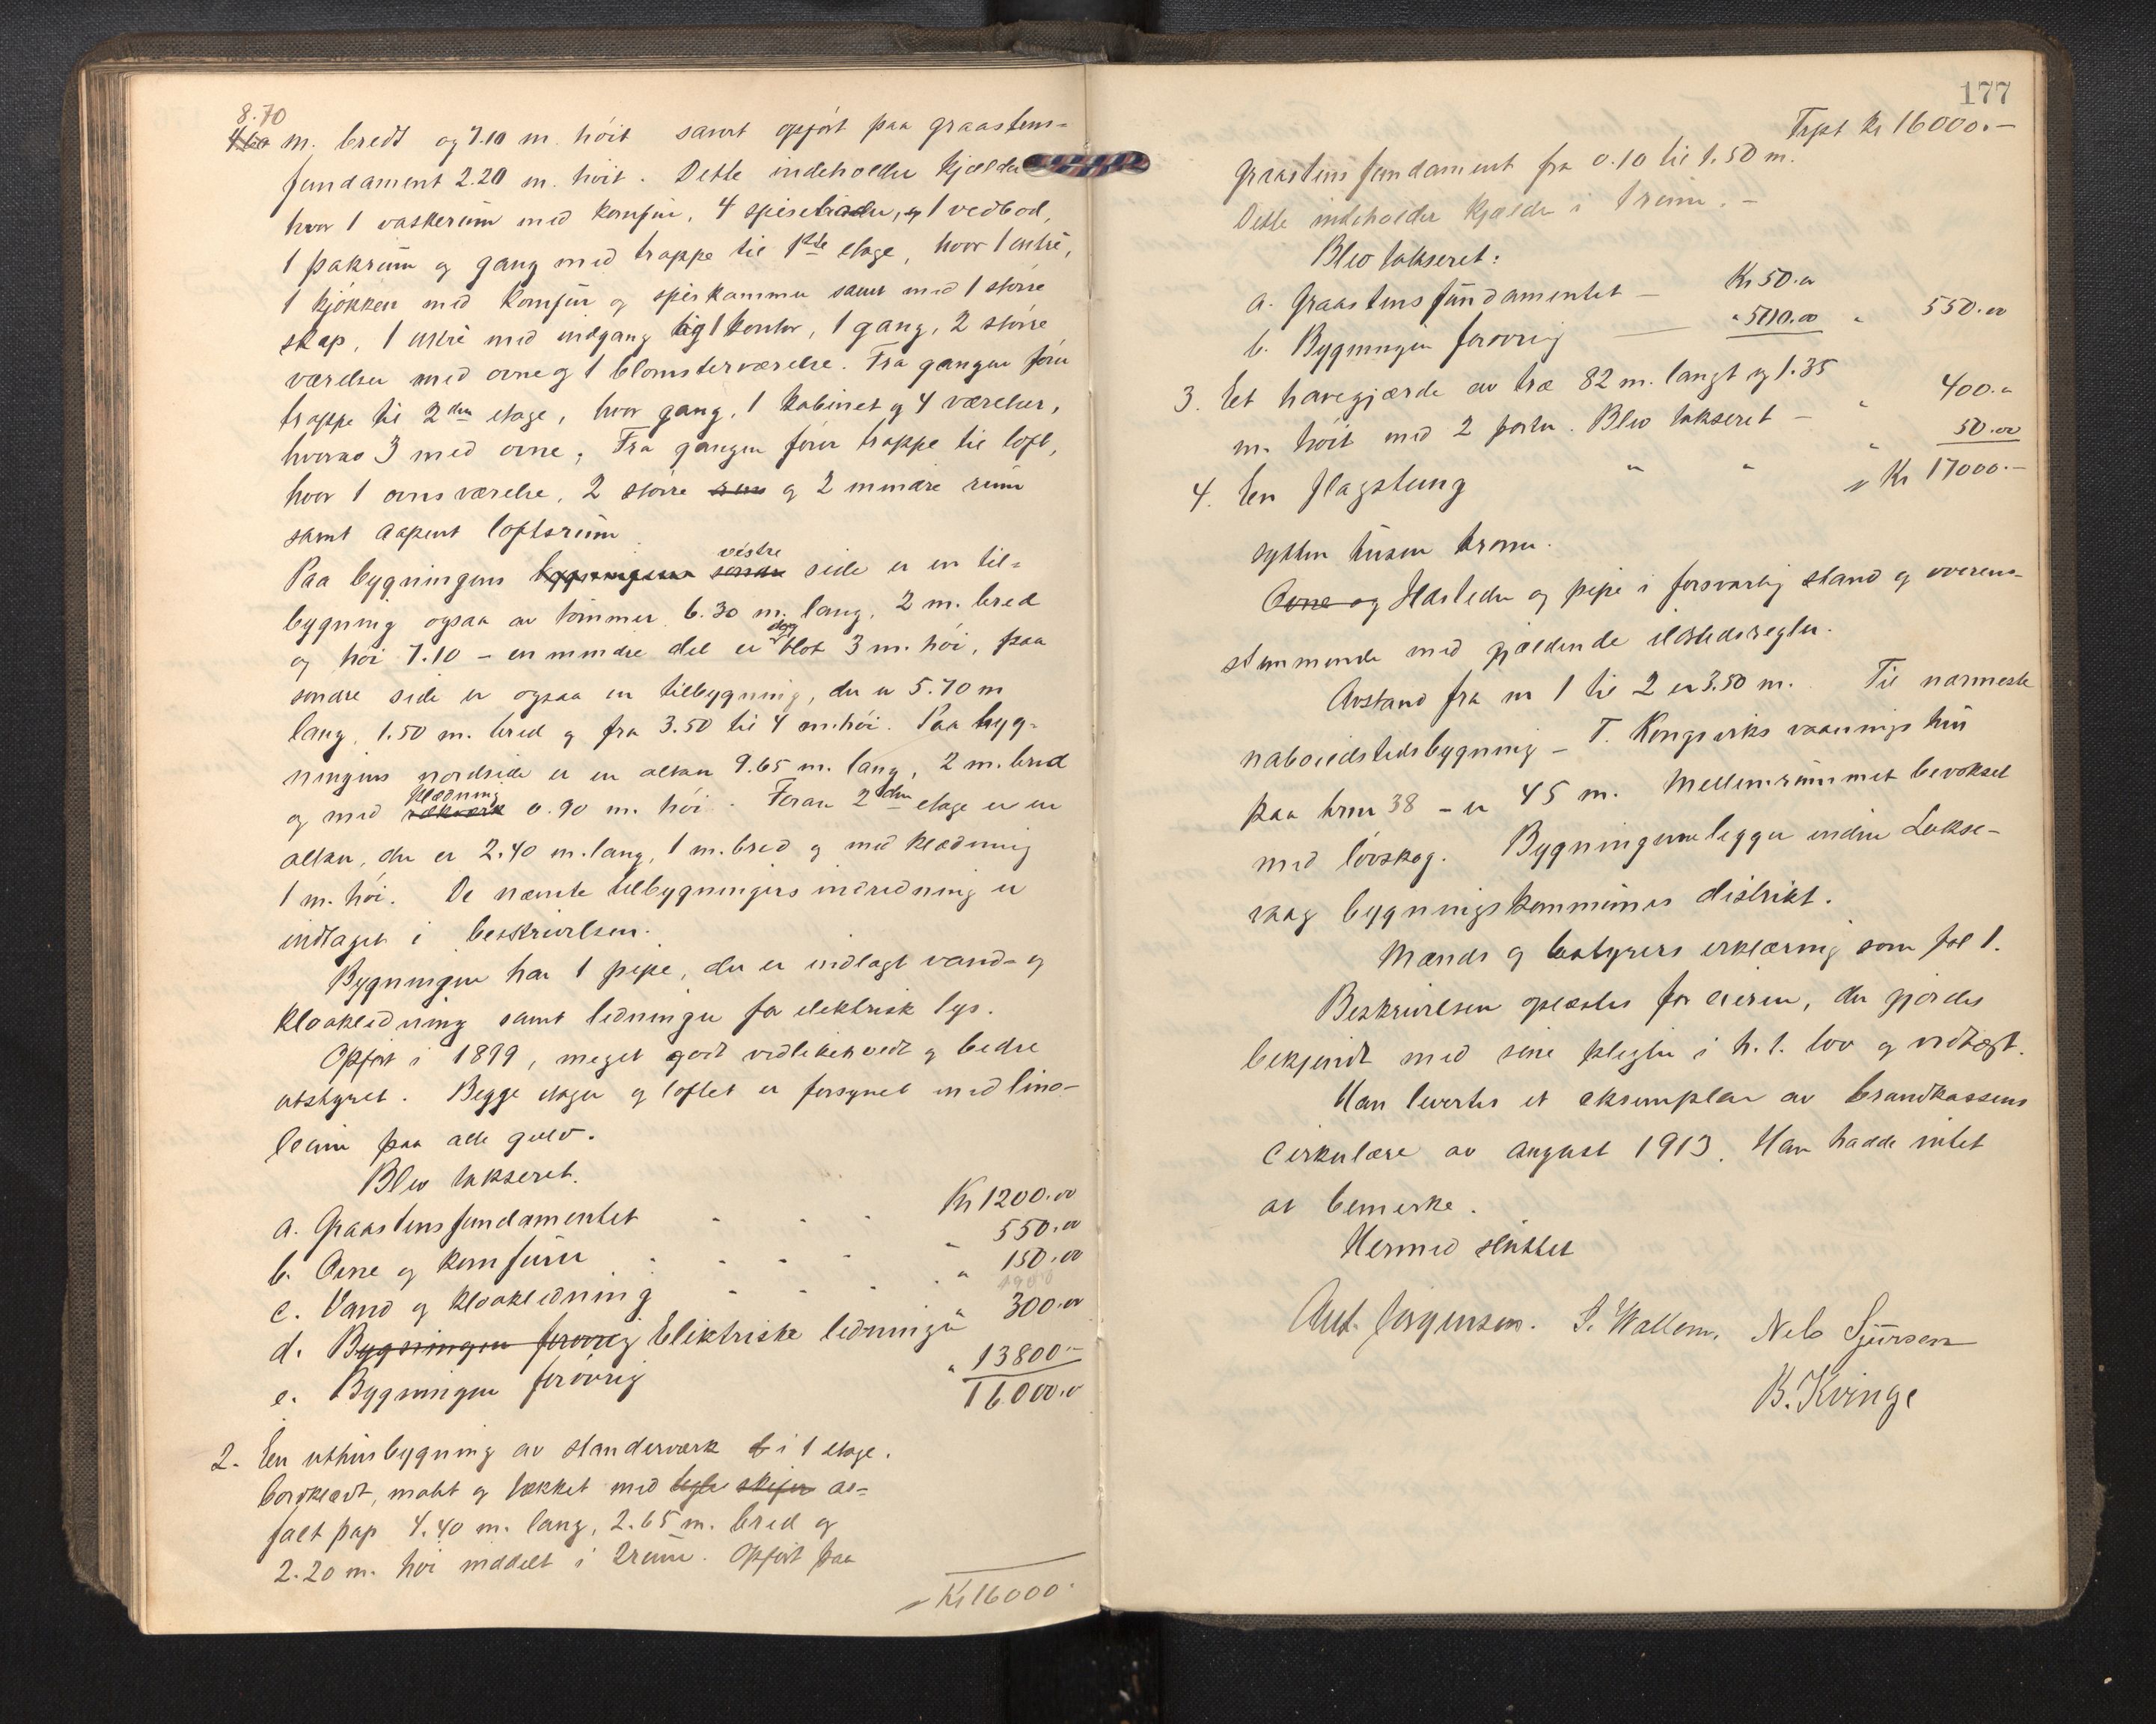 8.70
m. bredt og 7.10 m. höit samt opfört paa graastens-
fundament 2.20 m. höit. Dette indeholder kjælder
hvor 1 vaskerum med komfur, 4 spiseboder, og 1 vedbod,
1 pakrum og gang med trappe til 1ste etage, hvor 1 entré,
1 kjökken med komfur og spiskammer samt med 1 större
skap, 1 entré med indgang til 1 kontor, 1 gang, 2 större
værelser med ovne og 1 blomsterværelse. Fra gangen förer
trappe til 2den etage, hvor gang, 1 kabinet og 4 værelser,
hvorav 3 med ovne. Fra gangen förer trappe til loft,
hvor 1 ovnsværelse, 2 större rum og 2 mindre rum
samt aapent loftsrum.
Paa bygningens bygningens söndre vestre side er en til-
bygning ogsaa av tömmer 6.30 m. lang, 2 m. bred
og höi 7.10 – en mindre del er dog blot 3 m. höi, paa
söndre side er ogsaa en tilbygning, der er 5.70 m
lang, 1.50 m. bred og fra 3.50 til 4 m. höi. Paa byg-
ningens nordside er en altan 9.65 m. lang, 2 m. bred
og med rækverk klædning 0.90 m. höi. Foran 2den etage er en
altan, der er 2.40 m. lang, 1 m. bred og med klædning
1 m. höi. De nævnte tilbygningers indredning er
indtaget i beskrivelsen.
Bygningen har 1 pipe, der er indlagt vand- og
kloakledning samt ledninger for elektrisk lys.
Opfört i 1899, meget godt vedlikeholdt og bedre
utstyret. Begge etager og loftet er forsynet med lino-
leum paa alle gulv.
Blev takseret.
a. Graastensfundamentet - - - Kr 1200.00
b. Ovne og komfurer - - - - " 550.00
c. Vand og kloakledning - - - - " 150.00
d. Bygningen forövrig Elektriske ledninger " 300.00
e. Bygningen forövrig " 13800.-
16000.0
2. En uthusbygning av standerværk b i 1 etage.
bordklædt, malt og tækket med tegl skifer as-
falt pap 4.40 m. lang, 2.65 m. bred og
2.20 m. höi inddelt i 2 rum. Opfört paa
Kr 16000.
177
Trpt Kr 16000.-
graastens fundament fra 0.10 til 1.50 m.
Dette indeholder kjælder i 1 rum. -
Blev takseret:
a. Graastensfundamentet - Kr 50.00
b. Bygningen forövrig - " 500.00 " 550.00
3. Et havegjærde av træ 82 m. langt og 1.35
m. höit med 2 porter. Blev takseret - " 400.00
4. En flagstang " " " 50.00
Kr 17000.-
sytten tusen kroner.
Ovne og Ildsteder og pipe i forsvarlig stand og overens-
stemmende med gjældende ildstedsregler.
Avstand fra nr 1 til 2 er 3.50 m. Til nærmeste
naboildstedsbygning – T. Kongsviks vaanings hus
paa brnr 38 – er 45 m. Mellemrummet bevokset
med lövskog. Bygningerne ligger inden Lakse-
vaag bygningskommunes distrikt.
Mænds og bestyrers erklæring som fol 1.
Beskrivelsen oplæstes for eieren, der gjordes
bekjendt med sine pligter i h. t. lov og vedtægt.
Han levertes et eksemplar av brandkassens
cirkulære av august 1913. Han hadde intet
at bemerke.
Hermed sluttet
Ant. Jörgensen. S. Wallem. Nels Sjursen
B. Kvinge